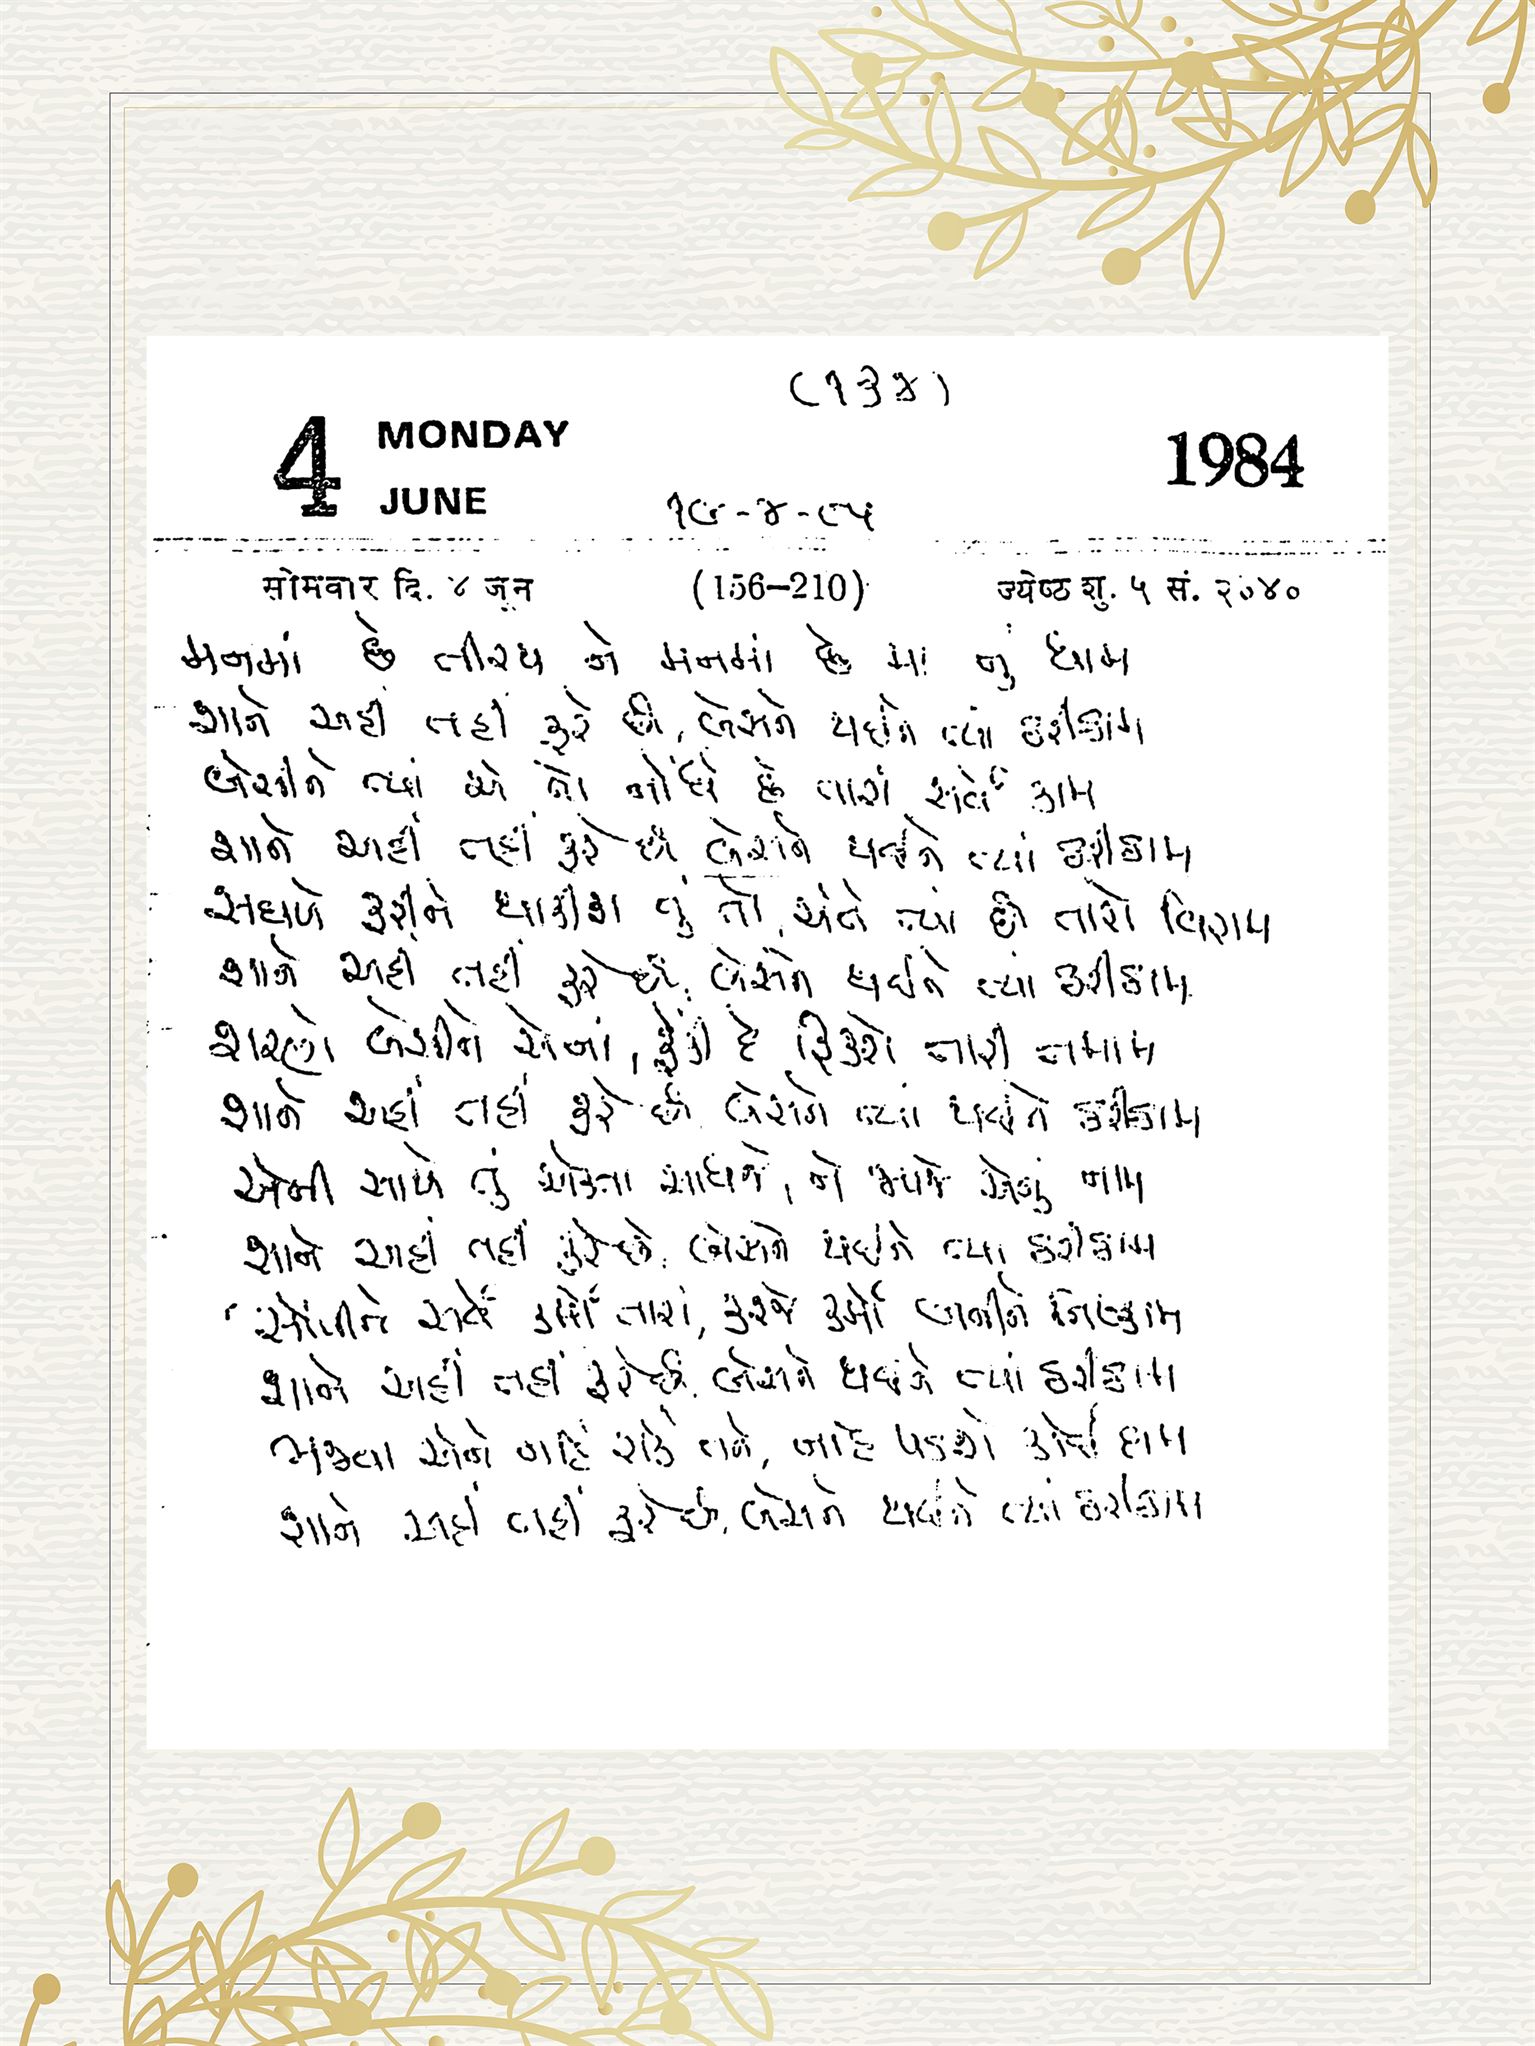 (૧૩૪)
4 MONDAY
JUNE
1984
૧૯-૪-૮૫
सोमवार दि. ४ जून (156–210) ज्येष्ठ शु. ५ सं. २०४०
મનમાં છે તીરથ ને મનમાં છે મા નું ધામ
શાને અહીં તહીં ફરે છે, બેસને થઈને ત્યાં ઠરીઠામ
બેસીને ત્યાં એ તો નોંધે છે તારાં સર્વે કામ
શાને અહીં તહીં ફરે છે બેસને થઈને ત્યાં ઠરીઠામ
સઘળે ફરીને થાકીશ તું તો, અંતે ત્યાં છે તારો વિરામ
શાને અહીં તહીં ફરે છે, બેસને થઈને ત્યાં ઠરીઠામ
શરણે બેસીને એનાં, ફેંકી દે ફિકરો તારી તમામ
શાને અહીં તહીં ફરે છે બેસને ત્યાં થઈને ઠરીઠામ
એની સાથે તું એકતા સાધજે, ને જપજે એનું નામ
શાને અહીં તહીં ફરે છે, બેસને થઈને ત્યાં ઠરીઠામ
સોંપીને સર્વે કર્મો તારાં, કરજે કર્મો બનીને નિષ્કામ
શાને અહીં તહીં ફરે છે, બેસને થઈને ત્યાં ઠરીઠામ
ભજતા એને નહિ રોકે તને, જાહે પડશે કોઈ દામ
શાને અહીં તહીં ફરે છે, બેસને થઈને ત્યાં ઠરીઠામ